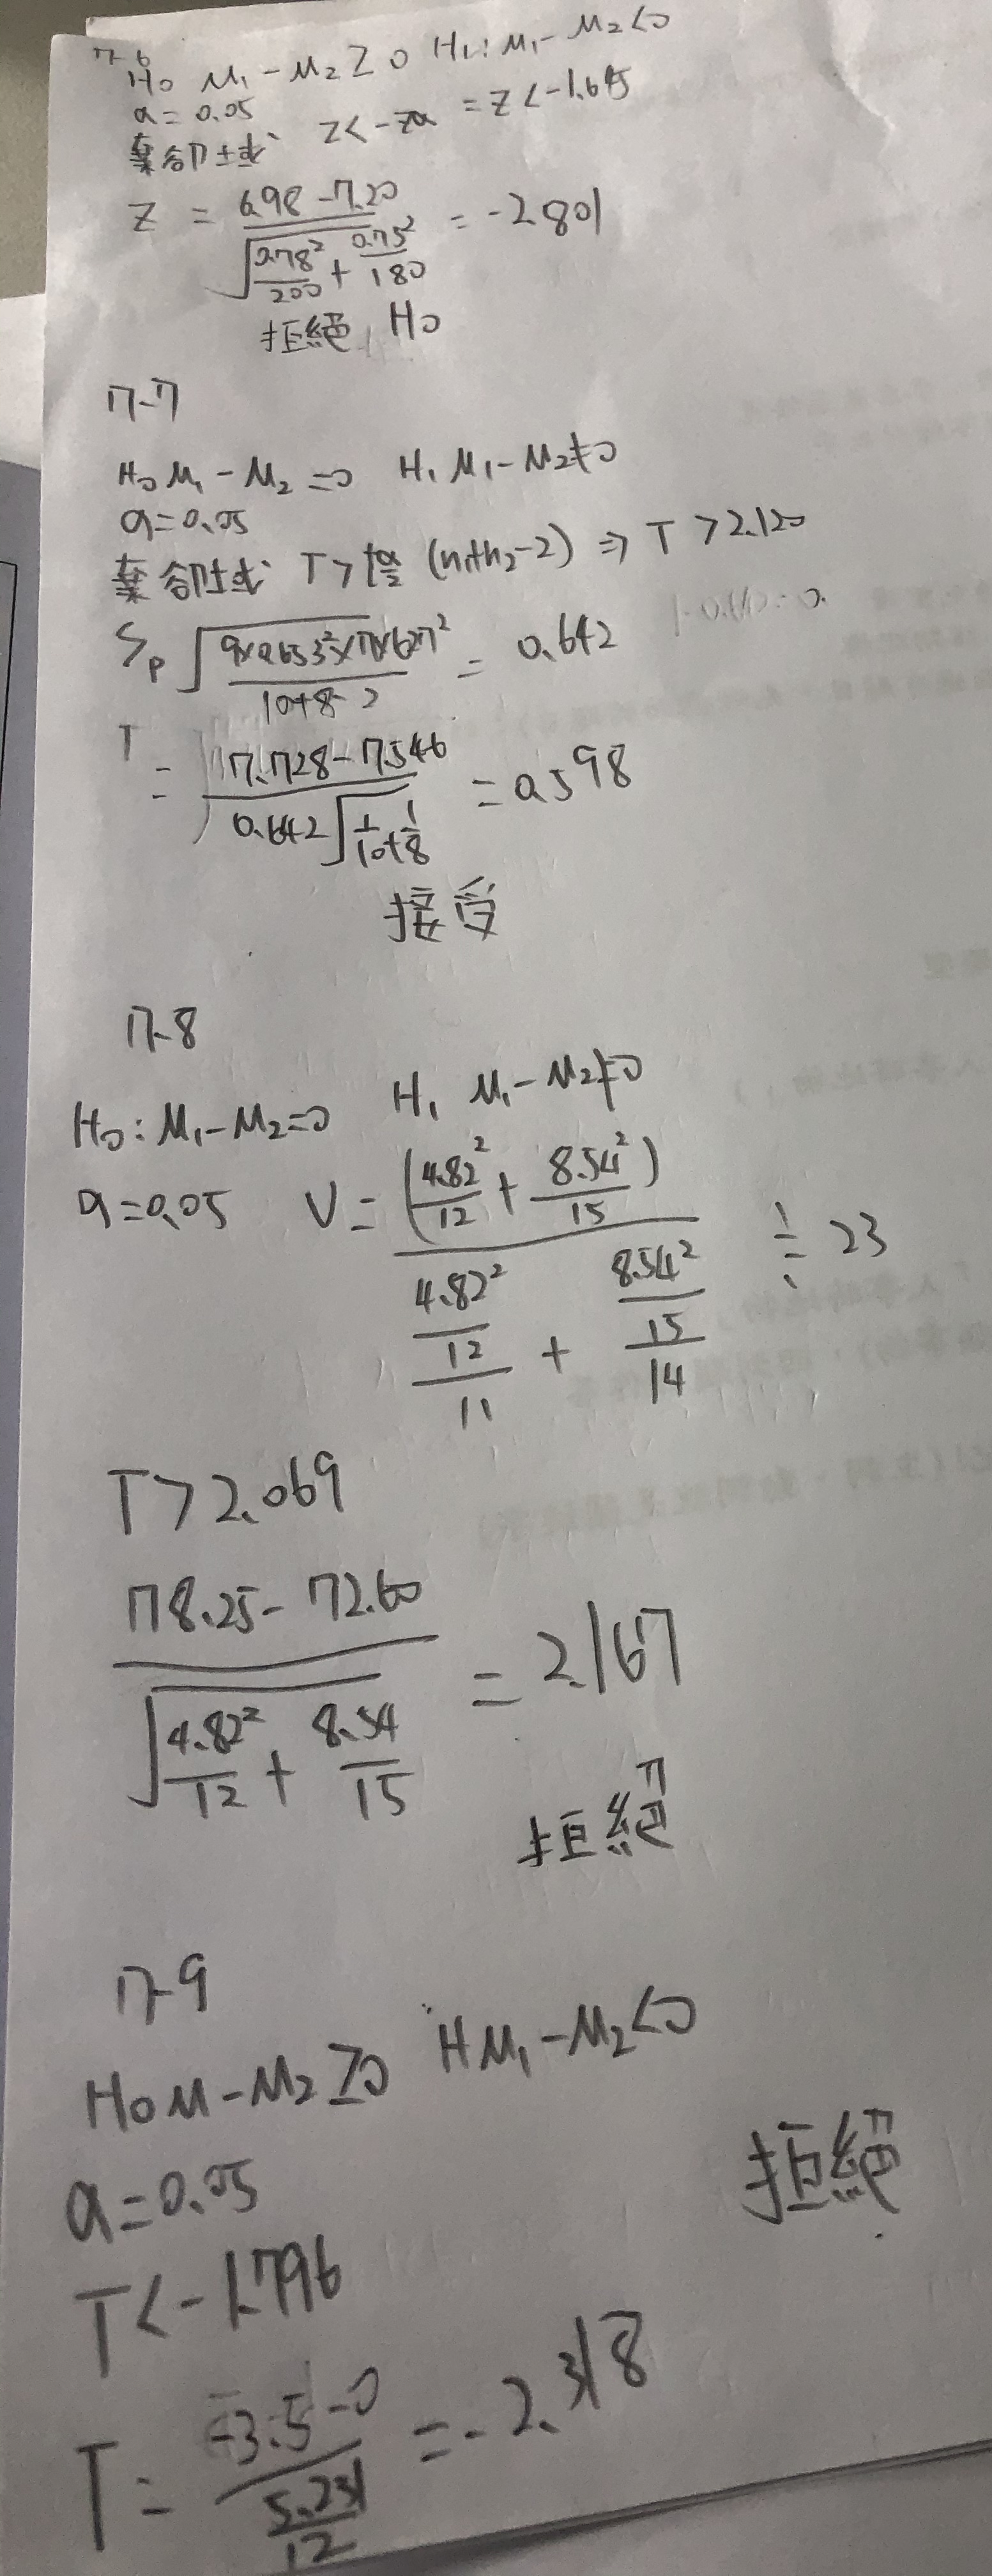 17-6
H₀ μ₁-μ₂≥0 H₁: μ₁-μ₂<0
α=0.05
棄卻域 Z<-Zα = Z<-1.645
Z = (6.98-7.20)/√(0.78²/200 + 0.75²/180) = -2.801
拒絕 H₀
17-7
H₀ μ₁-μ₂=0 H₁ μ₁-μ₂≠0
α=0.05
棄卻域 T>t α/2 (n₁+n₂-2) ⇒ T>2.120
Sp √((9×0.653²×7×627²)/(10+8-2)) = 0.642
T = (7.728-7.546)/(0.642√(1/10+1/8)) = 0.598
接受
17-8
H₀: μ₁-μ₂=0 H₁ μ₁-μ₂≠0
α=0.05 V = (4.82²/12 + 8.54²/15)/((4.82²/12)/11 + (8.54²/15)/14) ≒ 23
T>2.069
(78.25-72.60)/√(4.82²/12 + 8.54/15) = 2.167
拒絕
17-9
H₀ μ-μ₂≥0 H μ₁-μ₂<0
α=0.05
拒絕
T<-1.796
T = (-3.5-0)/(5.231/12) = -2.318